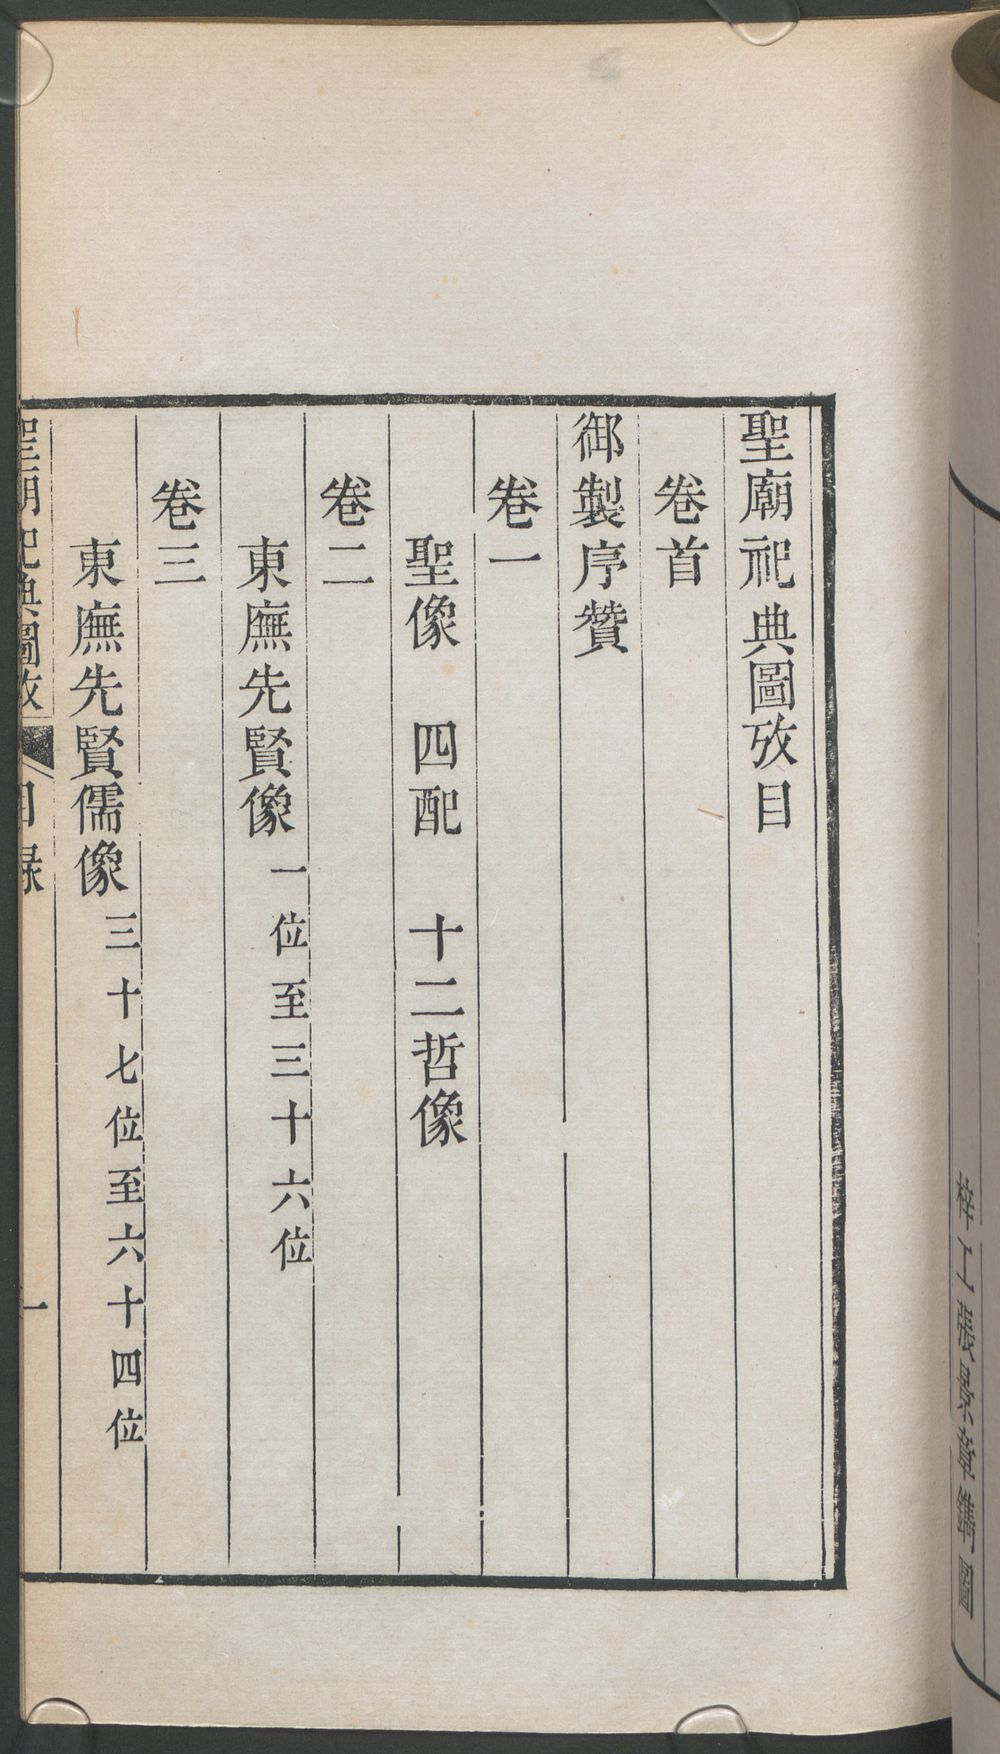 聖廟祀典圖攷目
卷首
御製序贊
卷一
聖像　四配　十二哲像
卷二
東廡先賢像一位至三十六位
卷三
東廡先賢儒像三十七位至六十四位
聖廟祀典圖攷　目録　一